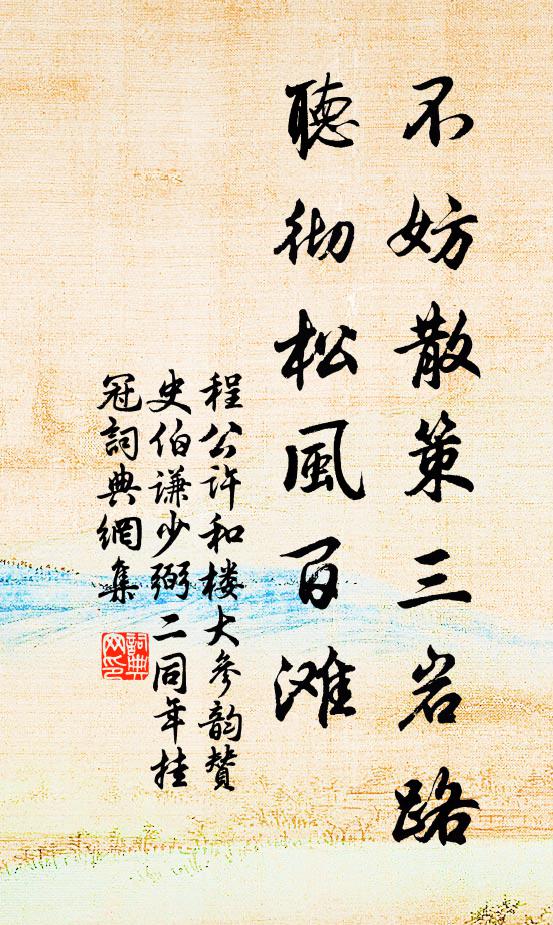 不妨散策三岩路
聽彻松風百滩
程公许和楼大參韵赞
史伯谦少弼二同年挂
冠詞典網集
詞典网印